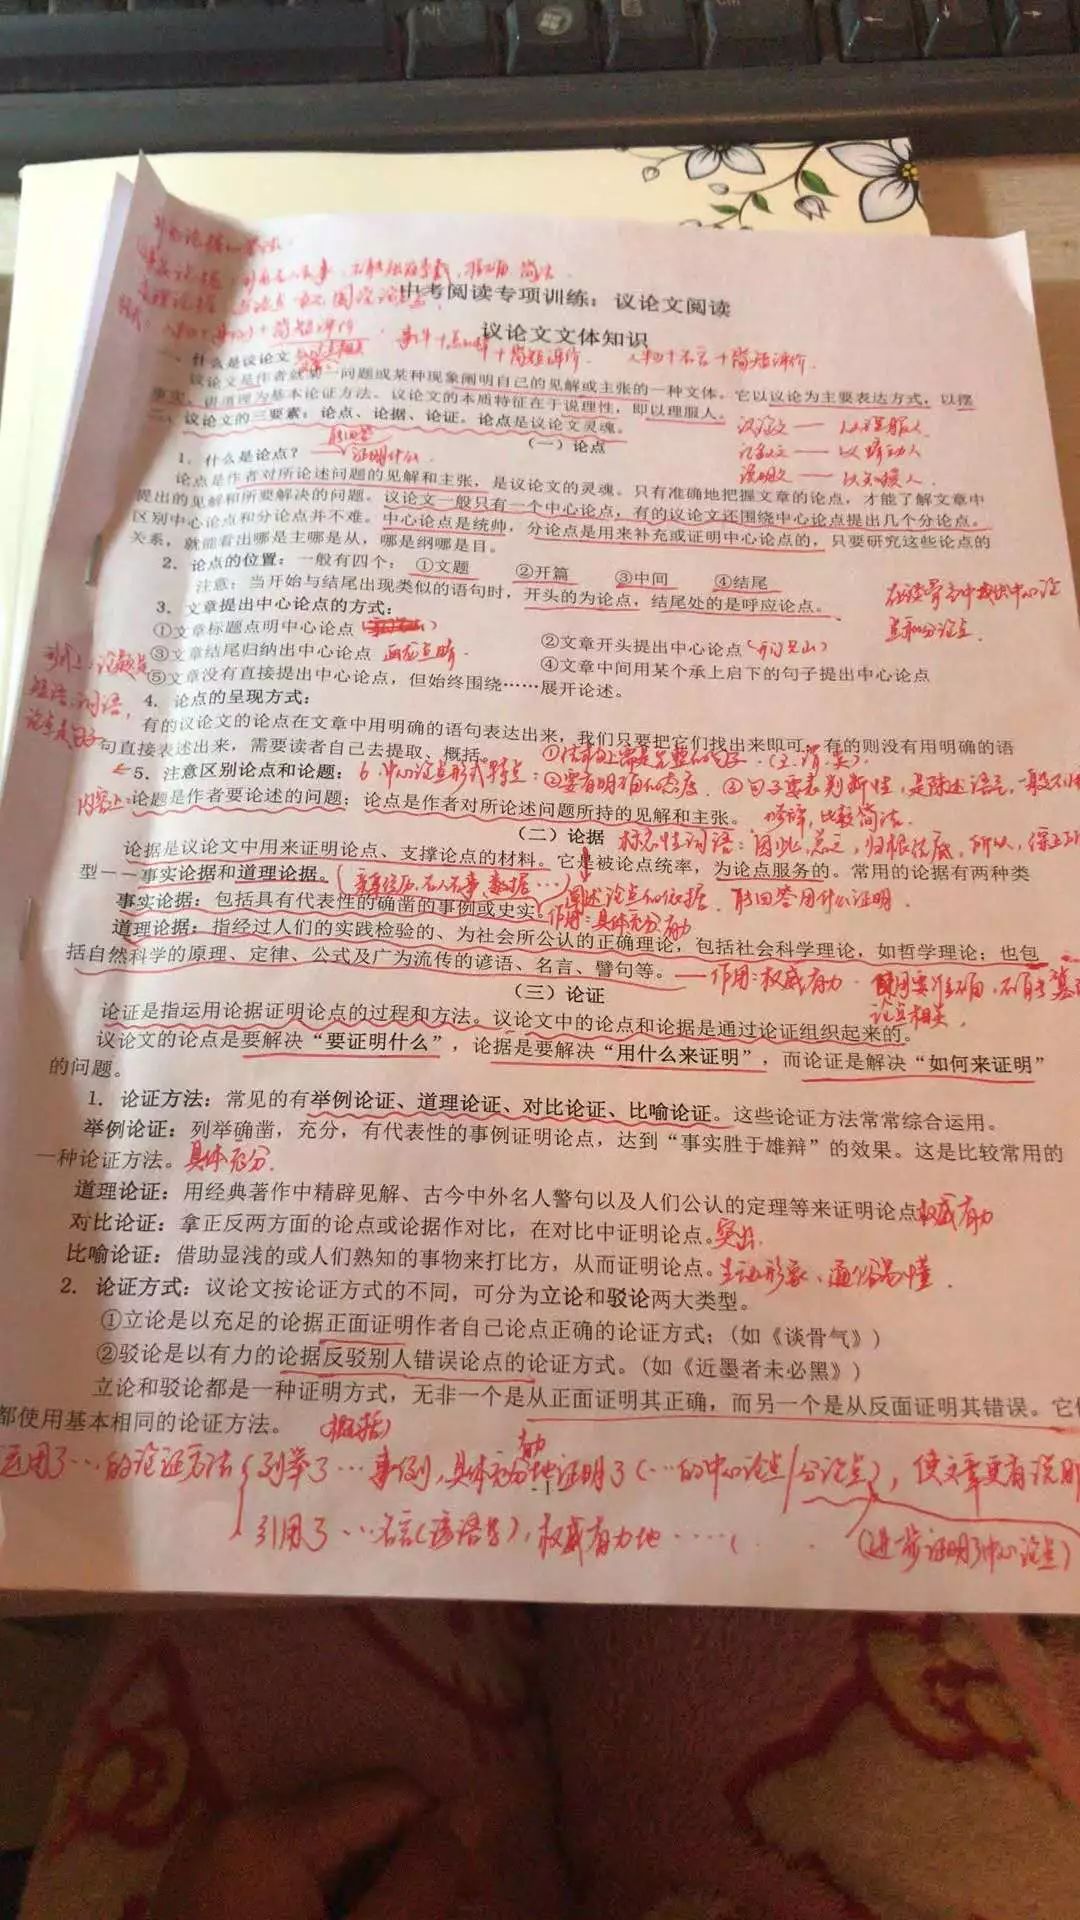 中考阅读专项训练：议论文阅读
议论文文体知识
一、什么是议论文
议论文是作者就某一问题或某种现象阐明自己的见解或主张的一种文体。它以议论为主要表达方式，以摆
事实、讲道理为基本论证方法。议论文的本质特征在于说理性，即以理服人。
二、议论文的三要素：论点、论据、论证。论点是议论文灵魂。
议论文——以理服人
记叙文——以情动人
说明文——以知授人
（一）论点
1．什么是论点？证明什么
论点是作者对所论述问题的见解和主张，是议论文的灵魂。只有准确地把握文章的论点，才能了解文章中
提出的见解和所要解决的问题。议论文一般只有一个中心论点，有的议论文还围绕中心论点提出几个分论点。
区别中心论点和分论点并不难。中心论点是统帅，分论点是用来补充或证明中心论点的，只要研究这些论点的
关系，就能看出哪是主哪是从，哪是纲哪是目。
2．论点的位置：一般有四个：①文题 ②开篇 ③中间 ④结尾
注意：当开始与结尾出现类似的语句时，开头的为论点，结尾处的是呼应论点。
3．文章提出中心论点的方式：
①文章标题点明中心论点 ②文章开头提出中心论点（开门见山）
③文章结尾归纳出中心论点 画龙点睛 ④文章中间用某个承上启下的句子提出中心论点
⑤文章没有直接提出中心论点，但始终围绕……展开论述。
4．论点的呈现方式：
有的议论文的论点在文章中用明确的语句表达出来，我们只要把它们找出来即可，有的则没有用明确的语
句直接表述出来，需要读者自己去提取、概括。
5．注意区别论点和论题：6.中心论点形式特点：②要有明确的态度．③句子要表判断性，是陈述语气，
内容上：论题是作者要论述的问题；论点是作者对所论述问题所持的见解和主张。
（二）论据 标志性词语：因此，总之，归根结底，所以，
论据是议论文中用来证明论点、支撑论点的材料。它是被论点统率，为论点服务的。常用的论据有两种类
型——事实论据和道理论据。
事实论据：包括具有代表性的确凿的事例或史实。作用：具体充分有力
道理论据：指经过人们的实践检验的、为社会所公认的正确理论，包括社会科学理论，如哲学理论；也包
括自然科学的原理、定律、公式及广为流传的谚语、名言、譬句等。——作用：权威有力．
（三）论证
论证是指运用论据证明论点的过程和方法。议论文中的论点和论据是通过论证组织起来的。
议论文的论点是要解决“要证明什么”，论据是要解决“用什么来证明”，而论证是解决“如何来证明”
的问题。
1．论证方法：常见的有举例论证、道理论证、对比论证、比喻论证。这些论证方法常常综合运用。
举例论证：列举确凿，充分，有代表性的事例证明论点，达到“事实胜于雄辩”的效果。这是比较常用的
一种论证方法。具体充分．
道理论证：用经典著作中精辟见解、古今中外名人警句以及人们公认的定理等来证明论点权威有力
对比论证：拿正反两方面的论点或论据作对比，在对比中证明论点。突出．
比喻论证：借助显浅的或人们熟知的事物来打比方，从而证明论点。生动形象、通俗易懂．
2．论证方式：议论文按论证方式的不同，可分为立论和驳论两大类型。
①立论是以充足的论据正面证明作者自己论点正确的论证方式；（如《谈骨气》）
②驳论是以有力的论据反驳别人错误论点的论证方式。（如《近墨者未必黑》）
立论和驳论都是一种证明方式，无非一个是从正面证明其正确，而另一个是从反面证明其错误。它
都使用基本相同的论证方法。（概括）
运用了…的论证方法 列举了…事例，具体充分有力地证明了（…的中心论点/分论点），使文章更有说
- 1 -
引用了…名言（谚语等），权威有力地……（进一步证明了中心论点）